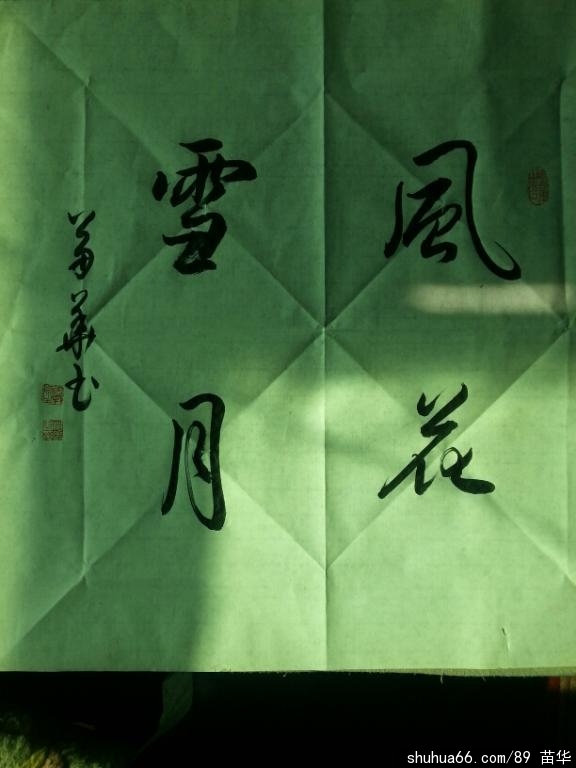 風花
雪月
苗華书
shuhua66.com/89 苗华